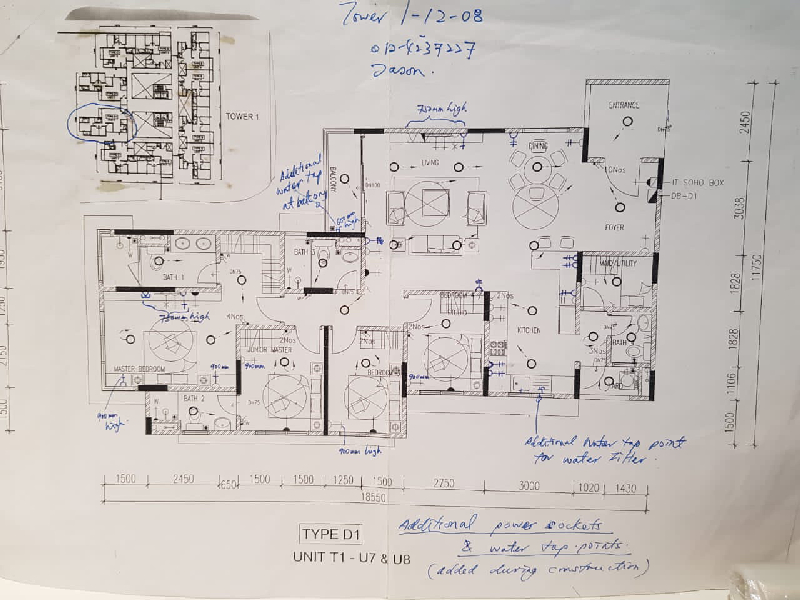 Tower 1-12-08
012-4237227
Jason.
TOWER 1
750mm high
ENTRANCE
2450
DINING
LIVING
Additional
water tap
at balcony
BALCONY
600mm
high
IT SOHO BOX
DB-D1
3038
FOYER
11750
BATH 1
BATH 3
YARD/UTILITY
1828
750mm high
4Nos
2Nos
BEDROOM
2Nos
2Nos
KITCHEN
BATH
1828
MASTER BEDROOM
JUNIOR MASTER
2Nos
BEDROOM
900mm
900mm
900mm
YARD
1106
900mm
high
BATH 2
900mm high
Additional water tap point
for water filter.
1500
1500
2450
650
1500
1500
1250
1500
2750
3000
1020
1430
18550
TYPE D1
UNIT T1 - U7 & U8
Additional power sockets
& water tap points
(added during construction)